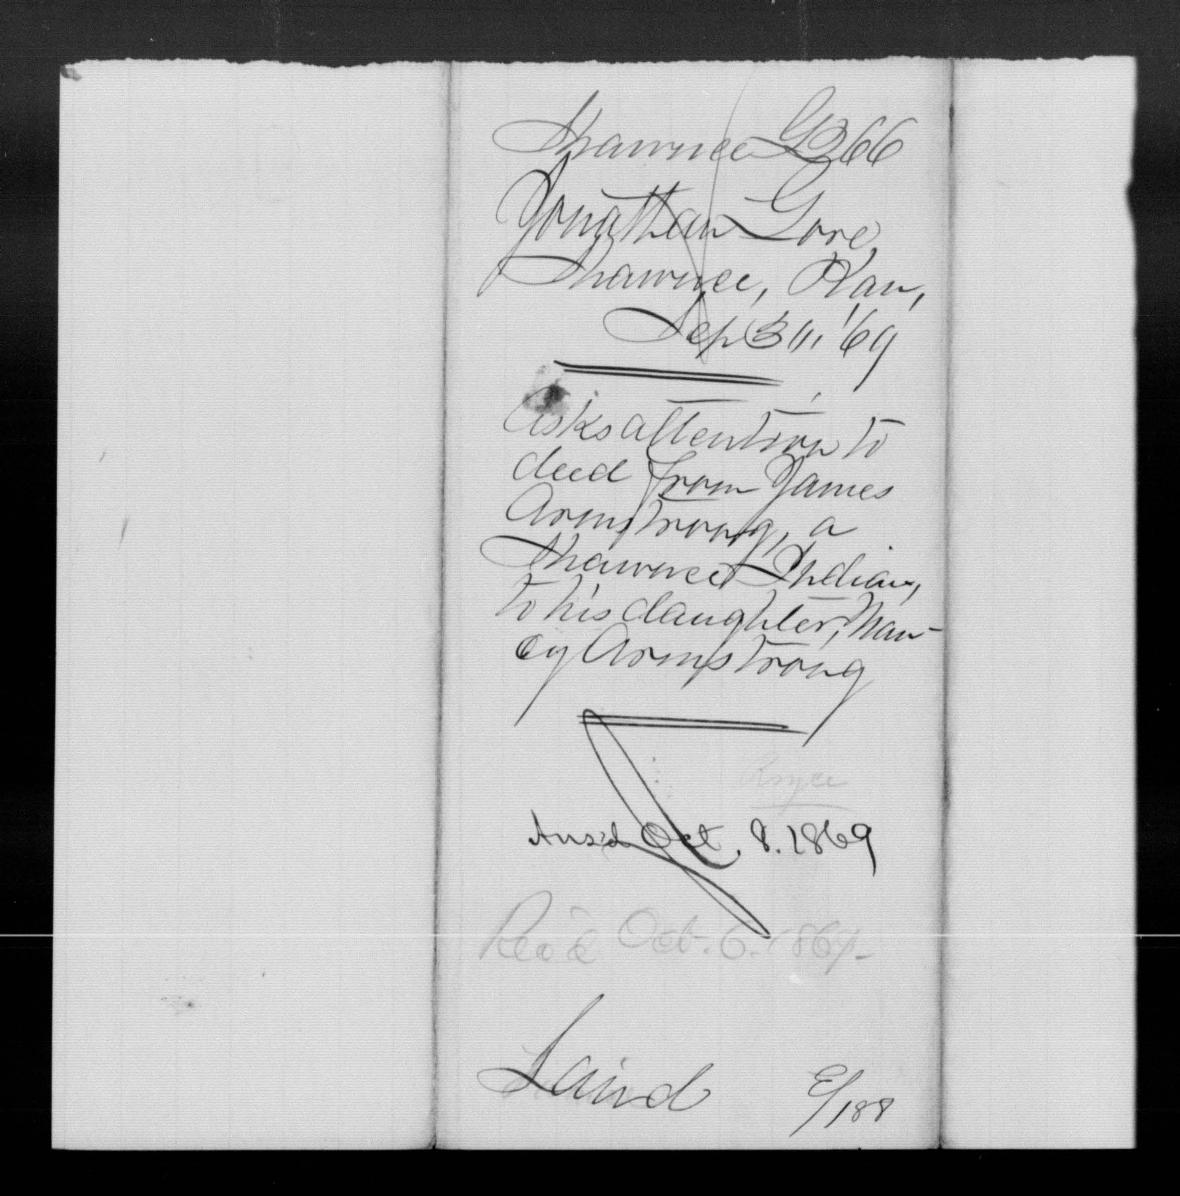 Shawnee G 366
Jonathan Gore,
Shawnee, Kan,
Sep 30, '69
Asks attention to
deed from James
Armstrong, a
Shawnee Indian,
to his daughter, Nan-
cy Armstrong
Ans'd Oct. 8. 1869
Rec'd Oct. 6. 1869.
Laird E/188